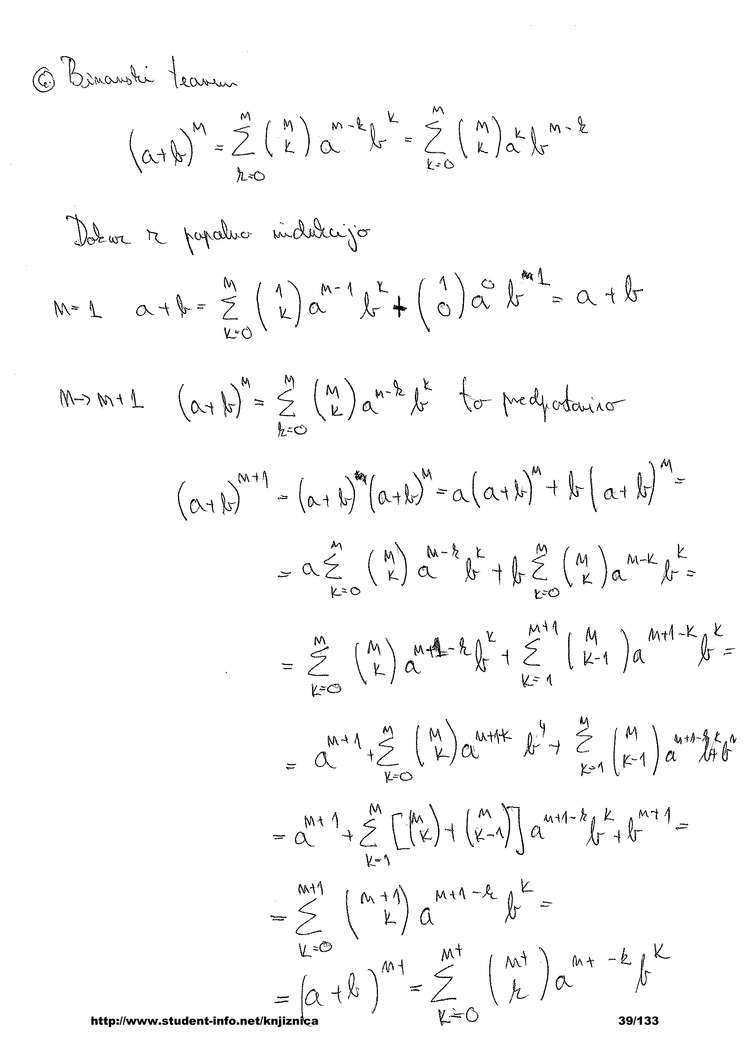 6. Binomski teorem
(a+b)^n = ∑_{k=0}^{n} (n k) a^{n-k} b^k = ∑_{k=0}^{n} (n k) a^k b^{n-k}
Dokaz z popolno indukcijo
n=1 a+b = ∑_{k=0}^{n} (1 k) a^{n-1} b^k + (1 0) a^0 b^1 = a+b
n→n+1 (a+b)^n = ∑_{k=0}^{n} (n k) a^{n-k} b^k to predpostavimo
(a+b)^{n+1} = (a+b) (a+b)^n = a(a+b)^n + b(a+b)^n =
= a ∑_{k=0}^{n} (n k) a^{n-k} b^k + b ∑_{k=0}^{n} (n k) a^{n-k} b^k =
= ∑_{k=0}^{n} (n k) a^{n+1-k} b^k + ∑_{k=1}^{n+1} (n k-1) a^{n+1-k} b^k =
= a^{n+1} + ∑_{k=0}^{n} (n k) a^{n+1-k} b^k + ∑_{k=1}^{n} (n k-1) a^{n+1-k}
= a^{n+1} + ∑_{k=1}^{n} [(n k) + (n k-1)] a^{n+1-k} b^k + b^{n+1} =
= ∑_{k=0}^{n+1} (n+1 k) a^{n+1-k} b^k =
= (a+b)^{n+} = ∑_{k=0}^{n+} (n+ k) a^{n+ -k} b^k
http://www.student-info.net/knjiznica 39/133